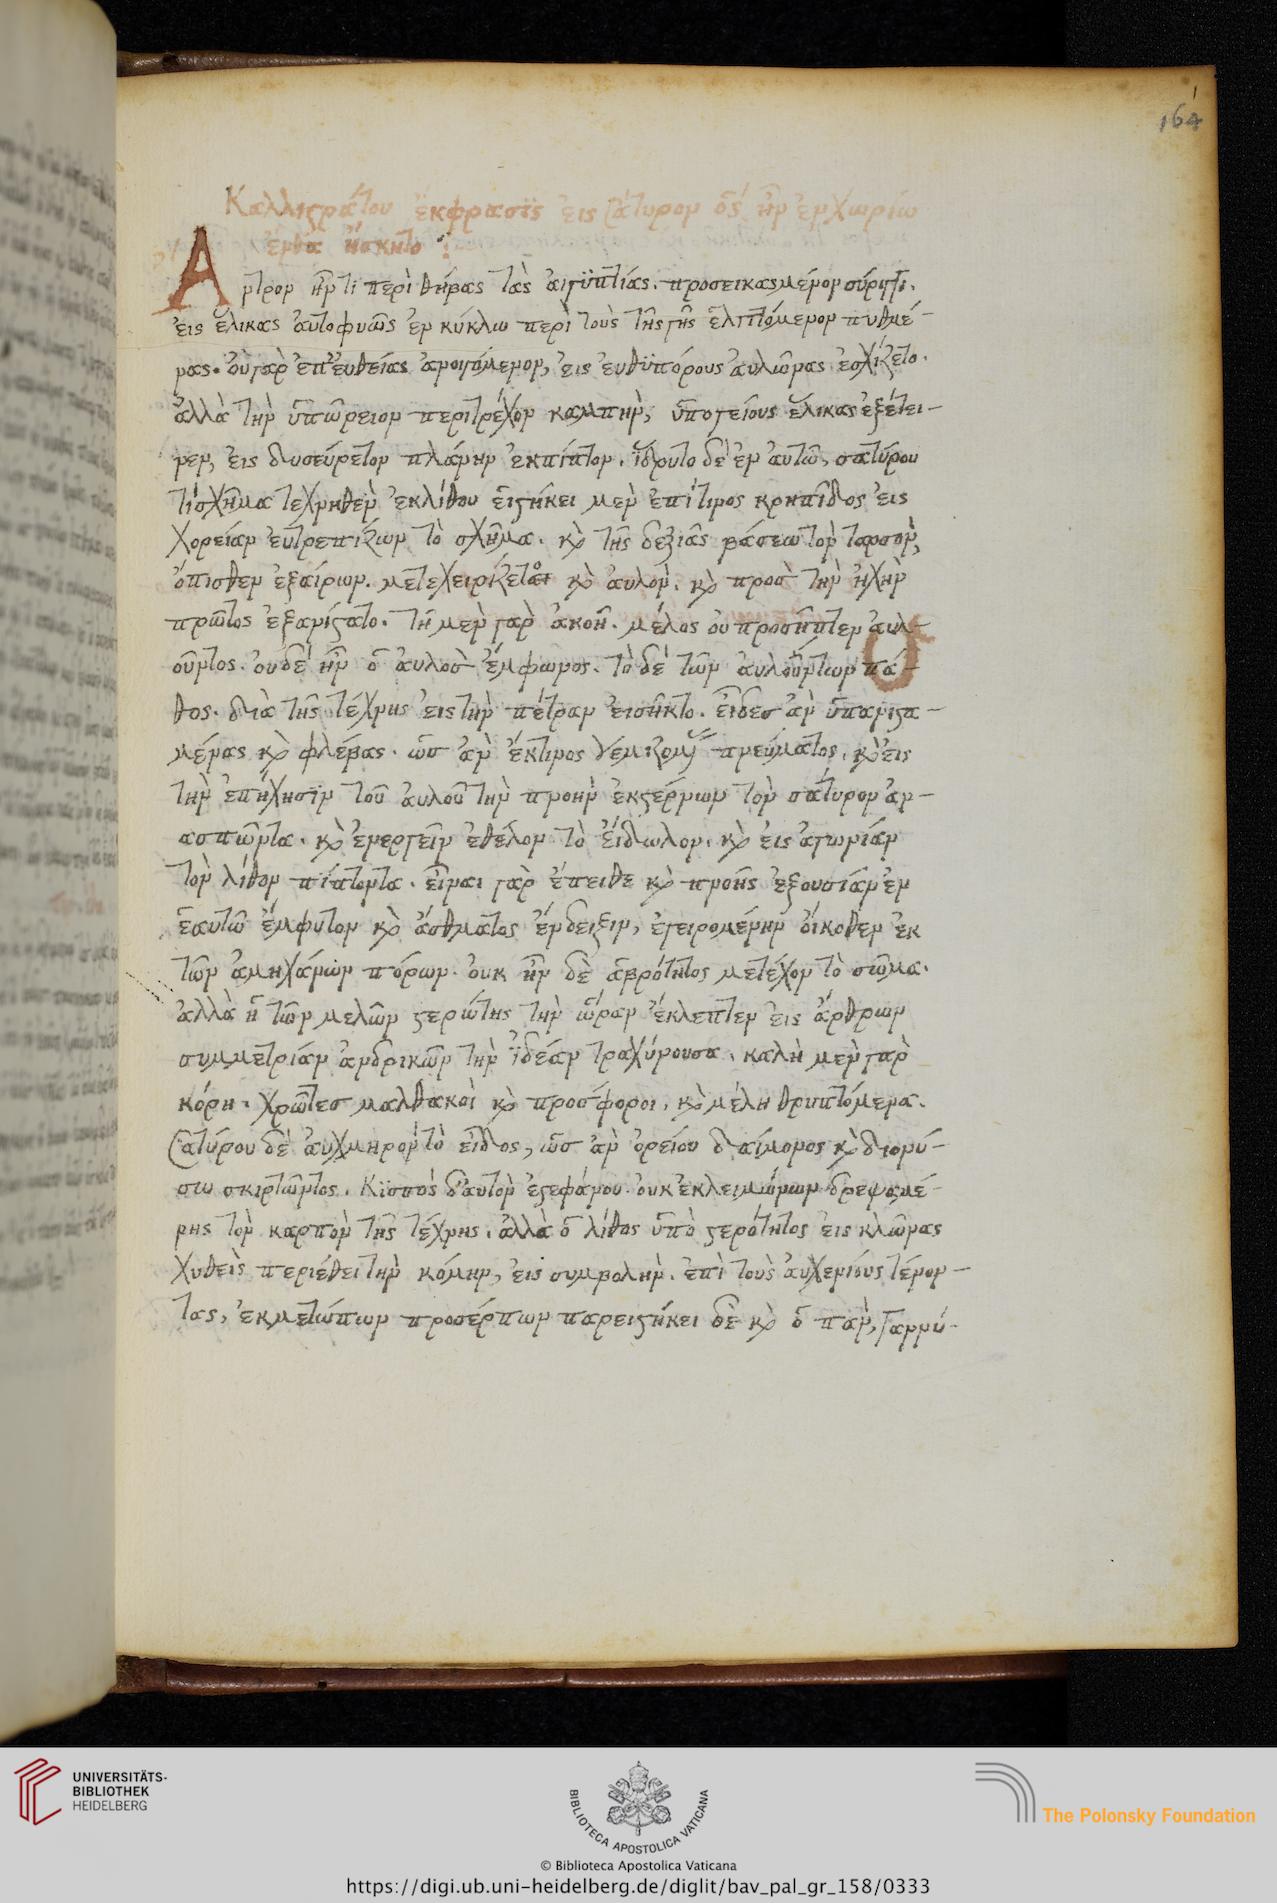 164
Καλλιστράτου ἔκφρασϊς εἰς Σάτυρον ὃς ἦν ἐν χωρίω
ἔνθα ἤσκητο :
Ἄντρον ἦν τι περὶ θήβας τὰς ἀιγϋπτίας. προσεικασμένον σύριγγι.
εἰς ἕλικας ἀυτοφυῶς ἐν κύκλω περὶ τοὺς τῆς γῆς ἑλιττόμενον πυθμέ-
νας. οὐ γὰρ ἐπ' ἐυθείας ἀνοιγόμενον, εἰς ἐυθϋπόρους ἀυλῶνας ἐσχίζετο.
ἀλλὰ τὴν ὑπώρειον περιτρέχον καμπὴν, ὑπογείους ἕλικας ἐξέτει-
νεν, εἰς δυσεύρετον πλάνην ἐκπίπτον. ἵδρυτο δὲ ἐν ἀυτῶ, σατύρου
τί σχῆμα τεχνηθὲν ἐκ λίθου εἱστήκει μὲν ἐπί τινος κρηπῖδος εἰς
χορείαν ἐυτρεπίζων τὸ σχῆμα. κ̀ τῆς δεξιᾶς βάσεω τὸν ταρσὸν,
ὄπισθεν ἐξαίρων. μετεχειρίζετο κ̀ ἀυλὸν. κ̀ προσ τὴν ἠχὴν
πρῶτος ἐξανίστατο. τῆ μὲν γὰρ ἀκοῆ. μέλος οὐ προσήπτεν ἀυλ-
οῦντος. ουδὲ ἦν ὁ ἀυλοσ ἔμφωνος. τὸ δὲ τῶν ἀυλούντων πά-
θος. διὰ τῆς τέχνης εἰς τὴν πέτραν εἰσῆκτο. εἶδεσ ἂν ὑπανιστα-
μένας κ̀ φλέβας. ὡσ ἂν ἔκτινος γεμιζομένας πνεύματος. κ̀ εἰς
τὴν ἐπήχησϊν τοῦ ἀυλοῦ τὴν πνοὴν ἐκστέρνων τὸν σάτυρον ἀν-
ασπῶντα. κ̀ ἐνεργεῖν ἐθέλον τὸ εἴδωλον. κ̀ εἰς ἀγωνίαν
τὸν λίθον πίπτοντα. εἶναι γὰρ ἔπειθε κ̀ πνοῆς ἐξουσίαν ἐν
ἑαυτῶ ἔμφυτον κ̀ ἄσθματος ἔνδειξιν, ἐγειρομένην οἴκοθεν ἐκ
τῶν ἀμηχάνων πόρων. ουκ ἦν δὲ ἁβρότητος μετέχον τὸ σῶμα.
ἀλλὰ ἡ τῶν μελῶν στερώτης τὴν ὥραν ἔκλεπτεν εἰς ἄρθρων
συμμετρίαν ἀνδρικῶν τὴν ἰδέαν τραχύνουσα. καλὴ μὲν γὰρ
κόρη. χρῶτεσ μαλθακοὶ κ̀ προσφοροι. κ̀ μέλη θρυπτόμενα.
Σατύρου δὲ ἀυχμηρὸν τὸ εἶδος, ὡσ ἂν ὀρείου δαίμονος κ̀ διονύ-
σω σκιρτῶντος. Κϊσσὸς δ' αυτὸν ἐστεφάνου. ουκ ἐκ λειμώνων δρεψαμέ-
νης τὸν καρπὸν τῆς τέχνης. ἀλλὰ ὁ λίθος ὑπὸ στερότητος εἰς κλῶνας
χυθεὶς περιέθει τὴν κόμην, εἰς συμβολὴν. ἐπὶ τοὺς ἀυχενίους τένον-
τας, ἐκ μετώπων προσέρπων παρειστήκει δὲ κ̀ ὁ πὰν, γαννύ-
UNIVERSITÄTS-
BIBLIOTHEK
HEIDELBERG
BIBLIOTECA APOSTOLICA VATICANA
© Biblioteca Apostolica Vaticana
The Polonsky Foundation
https://digi.ub.uni-heidelberg.de/diglit/bav_pal_gr_158/0333